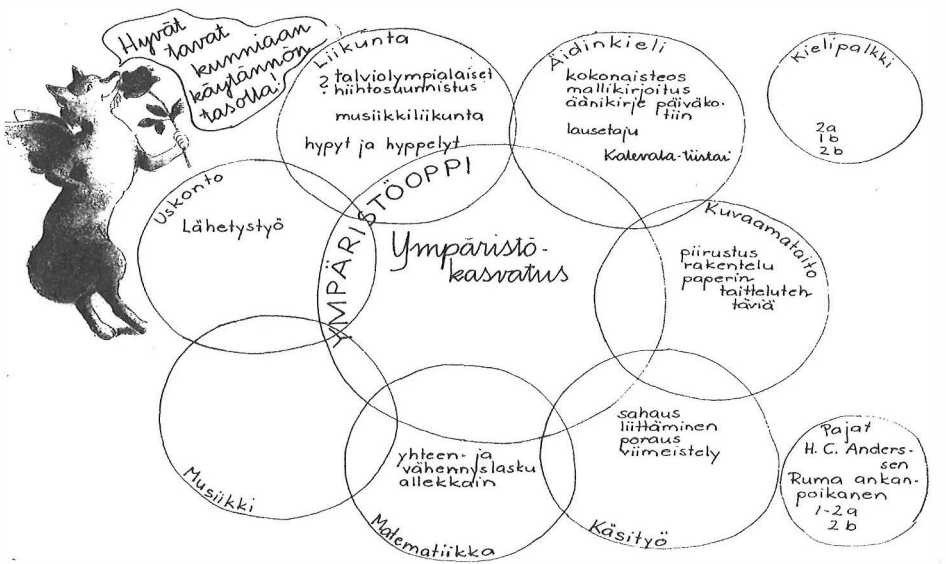 Hyvät
tavat
kunniaan
käytännön
tasolla!
Liikunta
? talviolympialaiset
: hiihtosuunnistus
musiikkiliikunta
hypyt ja hyppelyt
Äidinkieli
kokonaisteos
mallikirjoitus
äänikirje päiväko-
tiin
lausetaju
Kalevala-tiistai
Kielipalkki
2a
1b
2b
Uskonto
Lähetystyö
YMPÄRISTÖOPPI
Ympäristö-
kasvatus
Kuvaamataito
piirustus
rakentelu
paperin-
taitteluteh-
täviä
Musiikki
Matematiikka
yhteen- ja
vähennyslasku
allekkain
Käsityö
sahaus
liittäminen
poraus
viimeistely
Pajat
H. C. Anders-
sen
Ruma ankan-
poikanen
1-2a
2b